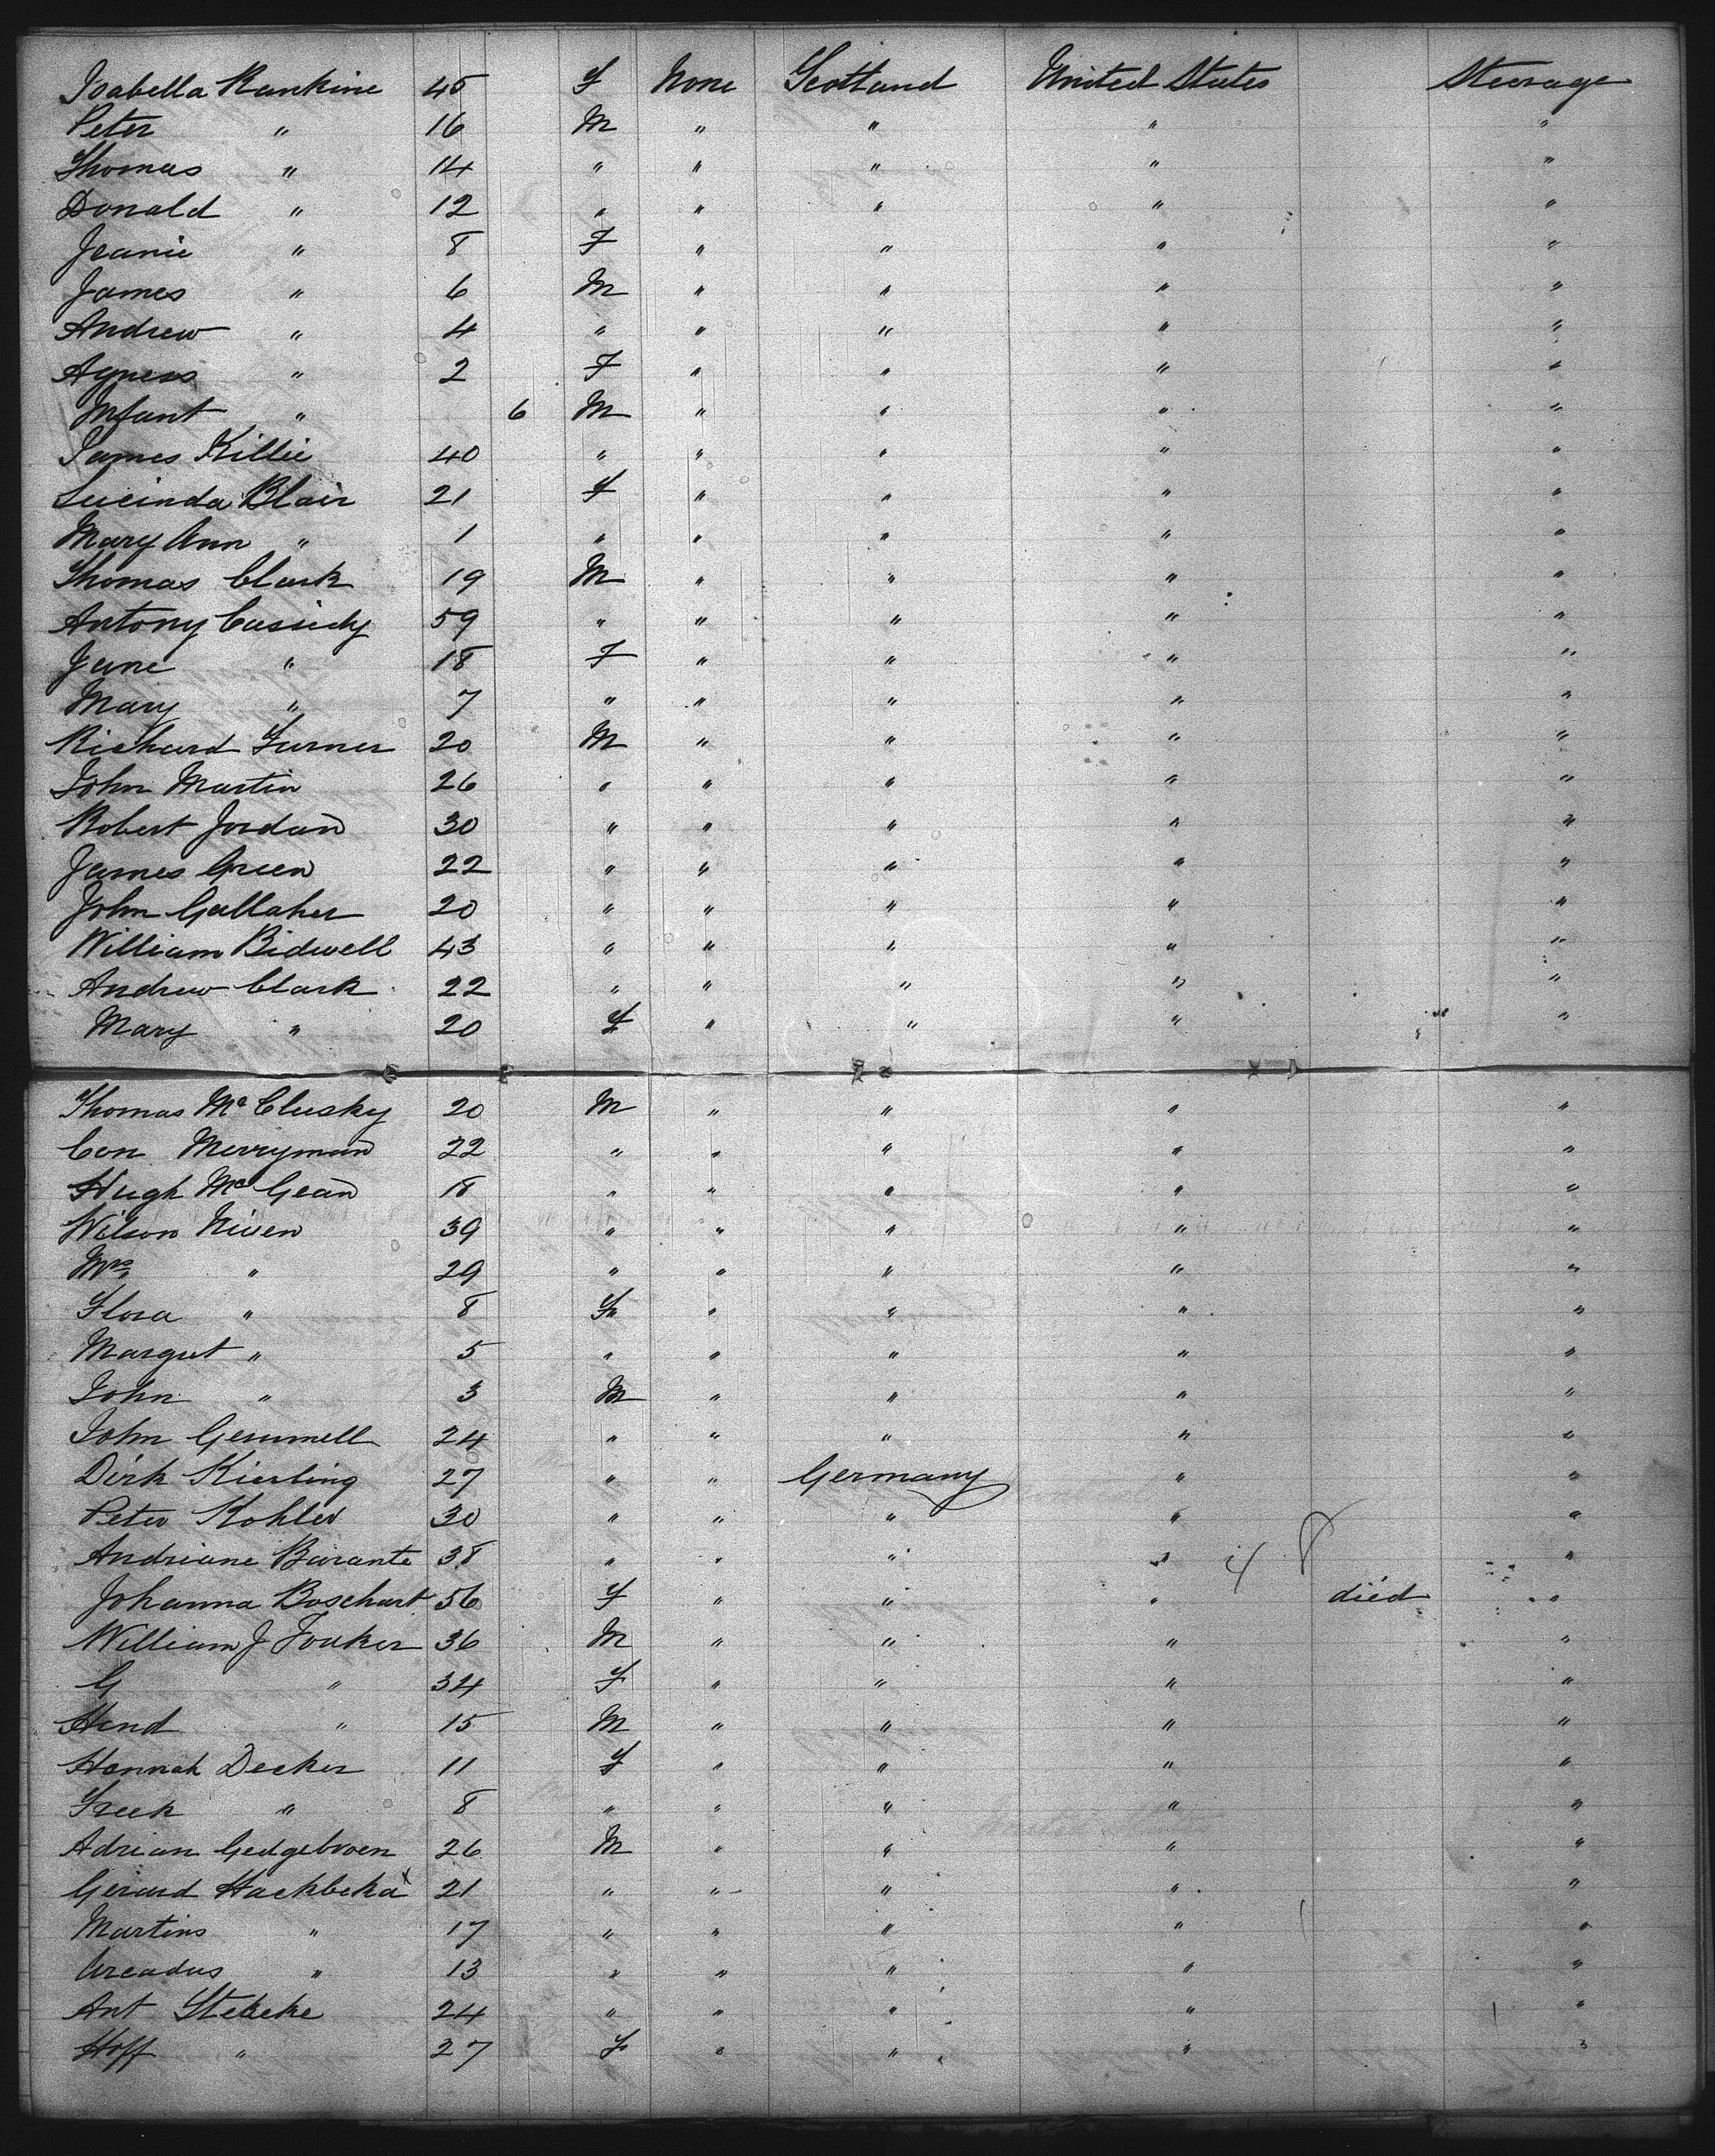 Isabella Rankine 45 F None Scotland United States Steerage
Peter " 16 M " " " "
Thomas " 14 " " " " "
Donald " 12 " " " " "
Jeanie " 8 F " " " "
James " 6 M " " " "
Andrew " 4 " " " " "
Agness " 2 F " " " "
Infant " 6 M " " " "
James Killie 40 " " " " "
Lucinda Blair 21 F " " " "
Mary Ann " 1 " " " " "
Thomas Clark 19 M " " " "
Antony Cassidy 59 " " " " "
Jane " 18 F " " " "
Mary " 7 " " " " "
Richard Turner 20 M " " " "
John Martin 26 " " " " "
Robert Jordan 30 " " " " "
James Green 22 " " " " "
John Gallaher 20 " " " " "
William Bidwell 43 " " " " "
Andrew Clark 22 " " " " "
Mary " 20 F " " " "
Thomas McClusky 20 M " " " "
Con Merryman 22 " " " " "
Hugh McGean 18 " " " " "
Wilson Niven 39 " " " " "
Mrs " 29 " " " " "
Flora " 8 F " " " "
Margret " 5 " " " " "
John " 3 M " " " "
John Gemmell 24 " " " " "
Dirk Kierling 27 " " Germany " "
Peter Kohler 30 " " " " "
Andriane Barante 38 " " " " "
Johanna Boschart 56 F " " " died "
William J Fouker 36 M " " " "
G " 34 F " " " "
Hend " 15 M " " " "
Hannah Decker 11 F " " " "
Freek " 8 " " " " "
Adrian 26 M " " " "
Gerard Hackbeka 21 " " " " "
Martins " 17 " " " " "
Arcadus " 13 " " " " "
Ant Stekeke 24 " " " " "
Hoff " 27 F " " " "